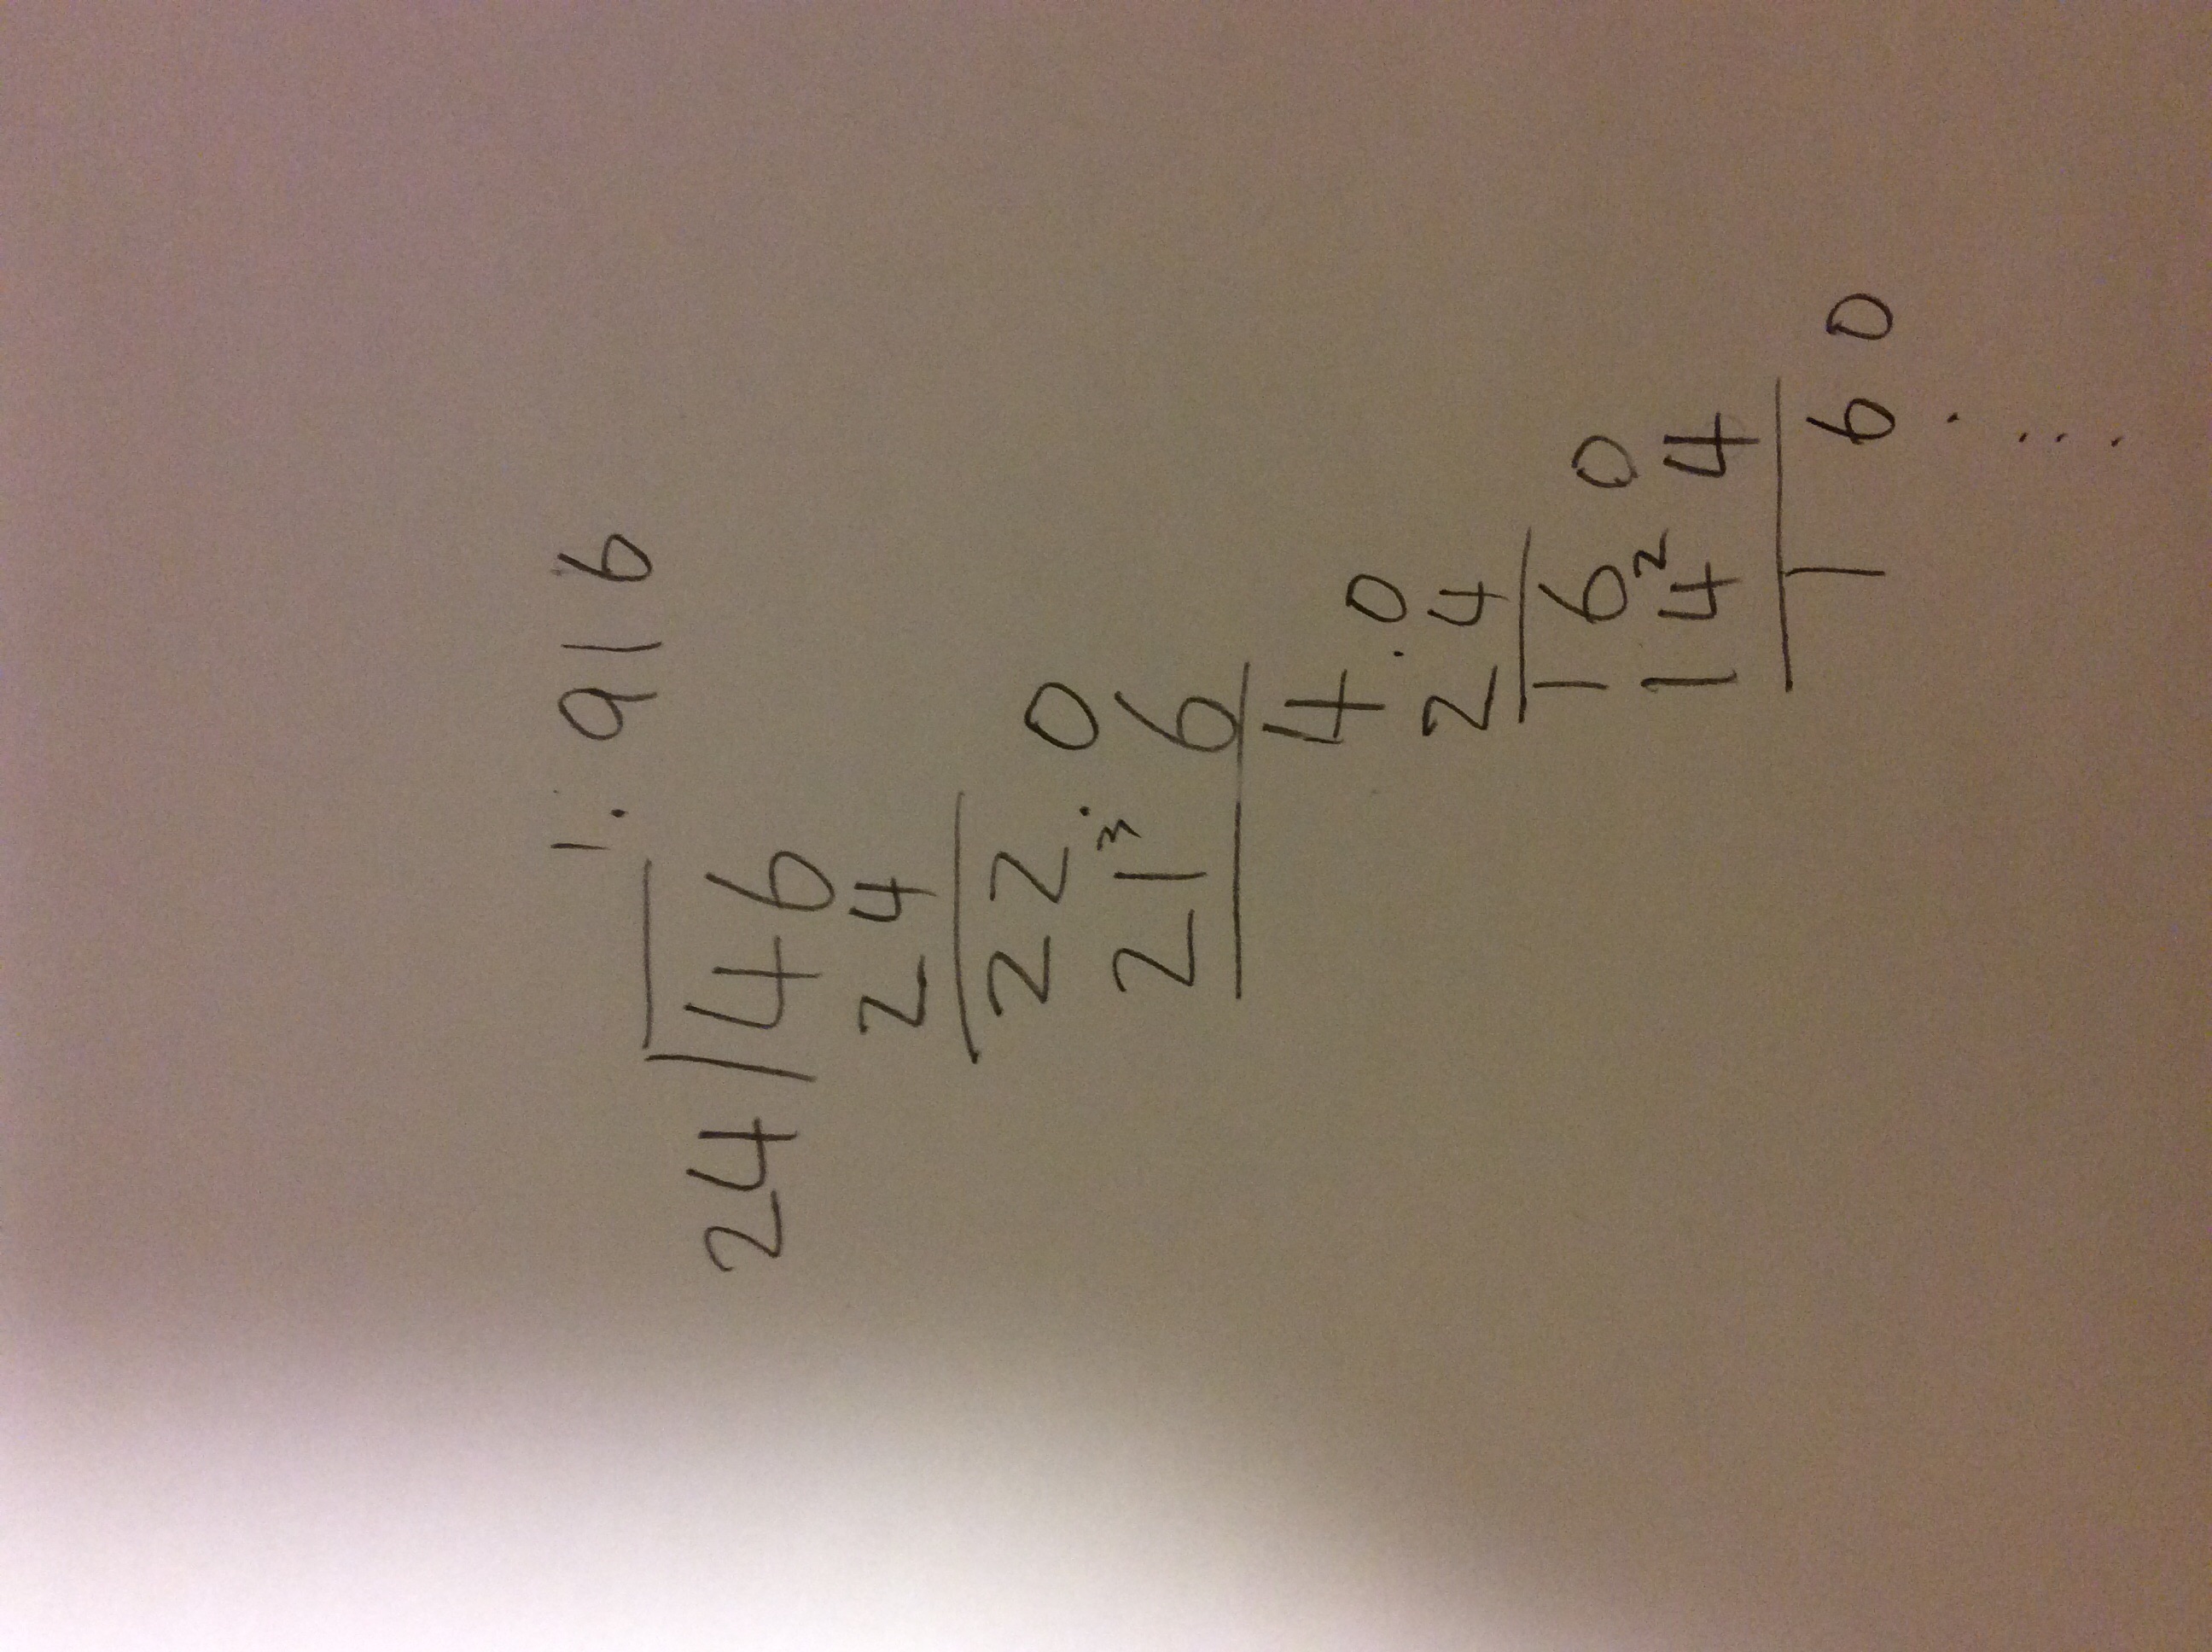 1.916
24|46
24
22.0
21³6
4.0
24
160
14²4
160
....